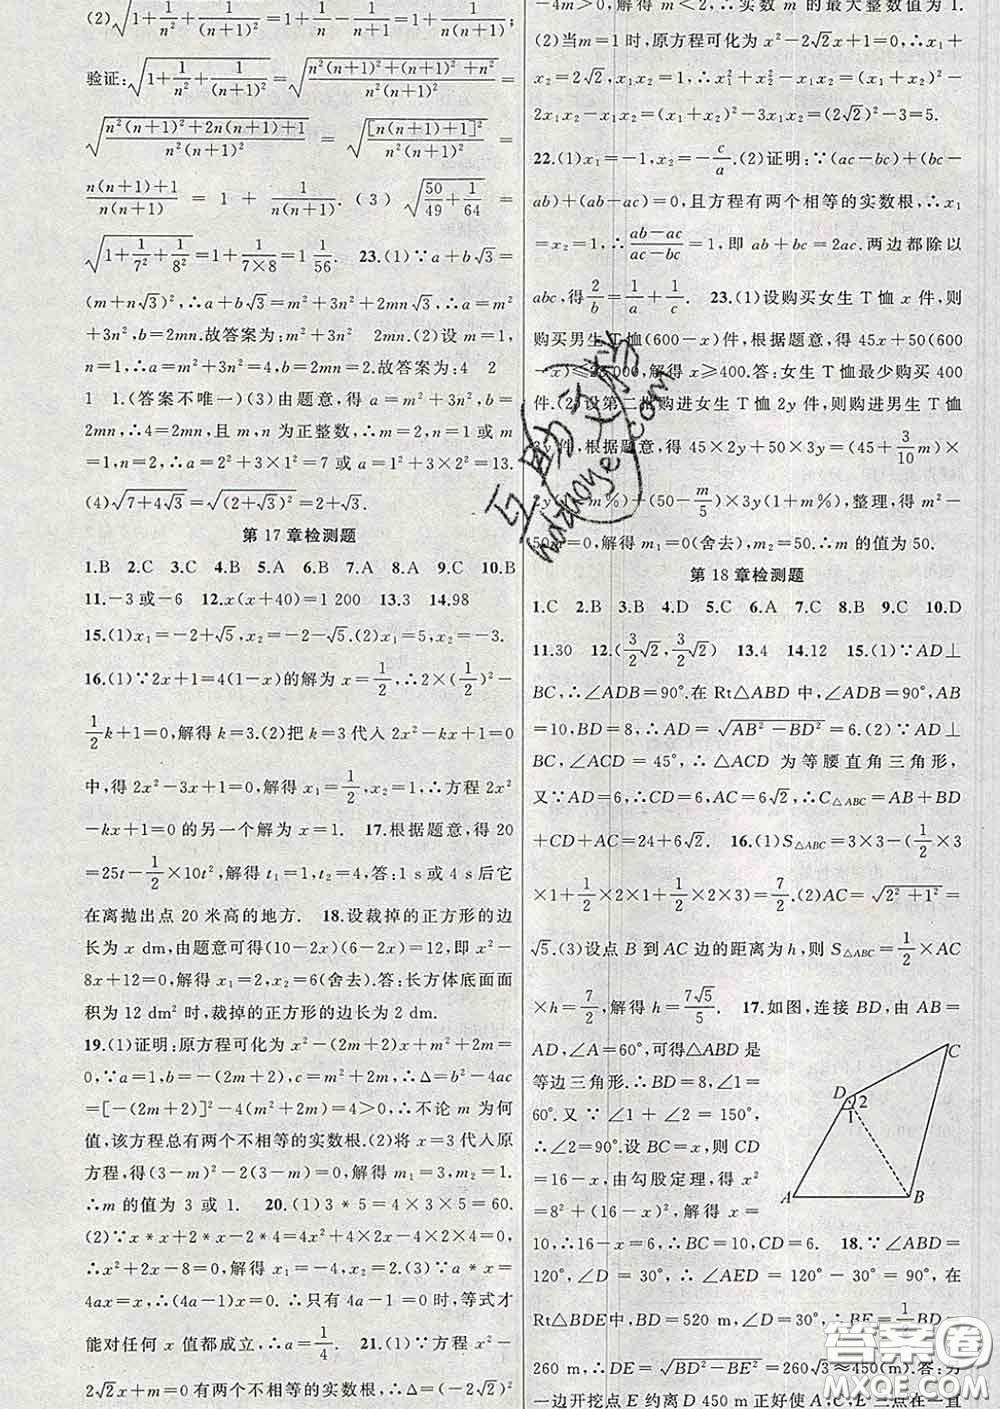 (2)√(1+1/n²+1/(n+1)²)=1+1/n-1/(n+1)=1+1/(n(n+1));
验证:√(1+1/n²+1/(n+1)²)=√((n²(n+1)²+(n+1)²+n²)/(n²(n+1)²))=
√((n²(n+1)²+2n(n+1)+1)/(n²(n+1)²)) = √([n(n+1)+1]²/(n²(n+1)²)) =
(n(n+1)+1)/(n(n+1)) = 1 + 1/(n(n+1)). (3) √(50/49+1/64) =
√(1+1/7²+1/8²)=1+1/(7×8)=1 1/56. 23.(1)∵a+b√3=
(m+n√3)²,∴a+b√3=m²+3n²+2mn√3,∴a=m²
+3n²,b=2mn.故答案为:m²+3n² 2mn.(2)设m=1,
n=1,∴a=m²+3n²=4,b=2mn=2.故答案为:4 2
1 1.(答案不唯一)(3)由题意,得a=m²+3n²,b=
2mn,∴4=2mn,且m,n为正整数,∴m=2,n=1或m
=1,n=2,∴a=2²+3×1²=7或a=1²+3×2²=13.
(4)√(7+4√3)=√((2+√3)²)=2+√3.
第17章检测题
1.B 2.C 3.C 4.B 5.A 6.B 7.A 8.A 9.C 10.B
11.-3或-6 12.x(x+40)=1 200 13.3 14.98
15.(1)x₁=-2+√5,x₂=-2-√5.(2)x₁=5,x₂=-3.
16.(1)∵2x+1=4(1-x)的解为x=1/2,∴2×(1/2)²-
1/2k+1=0,解得k=3.(2)把k=3代入2x²-kx+1=0
中,得2x²-3x+1=0,解得x₁=1/2,x₂=1,∴方程2x²
-kx+1=0的另一个解为x=1. 17.根据题意,得20
=25t-1/2×10t²,解得t₁=1,t₂=4.答:1 s或4 s后它
在离抛出点20米高的地方. 18.设裁掉的正方形的边
长为x dm,由题意可得(10-2x)(6-2x)=12,即x²-
8x+12=0,解得x₁=2,x₂=6(舍去).答:长方体底面面
积为12 dm²时,裁掉的正方形的边长为2 dm.
19.(1)证明:原方程可化为x²-(2m+2)x+m²+2m=
0,∵a=1,b=-(2m+2),c=m²+2m,∴Δ=b²-4ac
=[-(2m+2)]²-4(m²+2m)=4>0,∴不论m为何
值,该方程总有两个不相等的实数根.(2)将x=3代入原
方程,得(3-m)²-2(3-m)=0,解得m₁=3,m₂=1.
∴m的值为3或1. 20.(1)3*5=4×3×5=60.
(2)∵x*x+2*x-2*4=4x²+4×2x-4×2×4=0,
∴x²+2x-8=0.解得x₁=-4,x₂=2.(3)∵a*x=
4ax=x,∴(4a-1)x=0.∴只有4a-1=0时,等式才
能对任何x值都成立,∴a=1/4. 21.(1)∵方程x²-
2√2x+m=0有两个不相等的实数根,∴Δ=(-2√2)²
-4m>0,解得m<2,∴实数m的最大整数值为1.
(2)当m=1时,原方程可化为x²-2√2x+1=0,∴x₁+
x₂=2√2,x₁x₂=1,∴x₁²+x₂²-x₁x₂=(x₁+x₂)²-
2x₁x₂-x₁x₂=(x₁+x₂)²-3x₁x₂=(2√2)²-3=5.
22.(1)x₁=-1,x₂=-c/a.(2)证明:∵(ac-bc)+(bc-
ab)+(ab-ac)=0,且方程有两个相等的实数根,∴x₁
=x₂=1,∴(ab-ac)/(ac-bc)=1,即ab+bc=2ac.两边都除以
abc,得2/b=1/a+1/c. 23.(1)设购买女生T恤x件,则
购买男生T恤(600-x)件,根据题意,得45x+50(600
-x)≤28 000,解得x≥400.答:女生T恤最少购买400
件.(2)设第二批购进女生T恤2y件,则购进男生T恤
3y件,根据题意,得45×2y+50×3y=(45+3/10m)×
2y(1-m%)+(50-m/5)×3y(1+m%),整理,得m²-
50m=0,解得m₁=0(舍去),m₂=50.∴m的值为50.
第18章检测题
1.C 2.B 3.B 4.D 5.C 6.A 7.C 8.B 9.C 10.D
11.30 12.(3/2√2,3/2√2) 13.4 14.12 15.(1)∵AD⊥
BC,∴∠ADB=90°.在Rt△ABD中,∠ADB=90°,AB
=10,BD=8,∴AD=√(AB²-BD²)=6.(2)∵AD⊥
BC,∠ACD=45°,∴△ACD为等腰直角三角形,
又∵AD=6,∴CD=6,AC=6√2,∴C△ABC=AB+BD
+CD+AC=24+6√2. 16.(1)S△ABC=3×3-(1/2×3
×1+1/2×2×1+1/2×3×2)=7/2.(2)AC=√(2²+1²)=
√5.(3)设点B到AC边的距离为h,则S△ABC=1/2×AC
×h=7/2,解得h=7√5/5. 17.如图,连接BD,由AB=
AD,∠A=60°,可得△ABD是
等边三角形.∴BD=8,∠1=
60°.又∵∠1+∠2=150°,
∴∠2=90°.设BC=x,则CD
=16-x,由勾股定理,得x²
=8²+(16-x)²,解得x=
10,∴16-x=6,∴BC=10,CD=6. 18.∵∠ABD=
120°,∠D=30°,∴∠AED=120°-30°=90°,在
Rt△BDE中,BD=520 m,∠D=30°,∴BE=1/2BD=
260 m,∴DE=√(BD²-BE²)=260√3≈450(m).答:另
一边开挖点E约离D 450 m正好使A,C,E三点在一直
C
D
2
1
A
B
互助文学
hdzuoye.com
答案圈
MXQE.COM